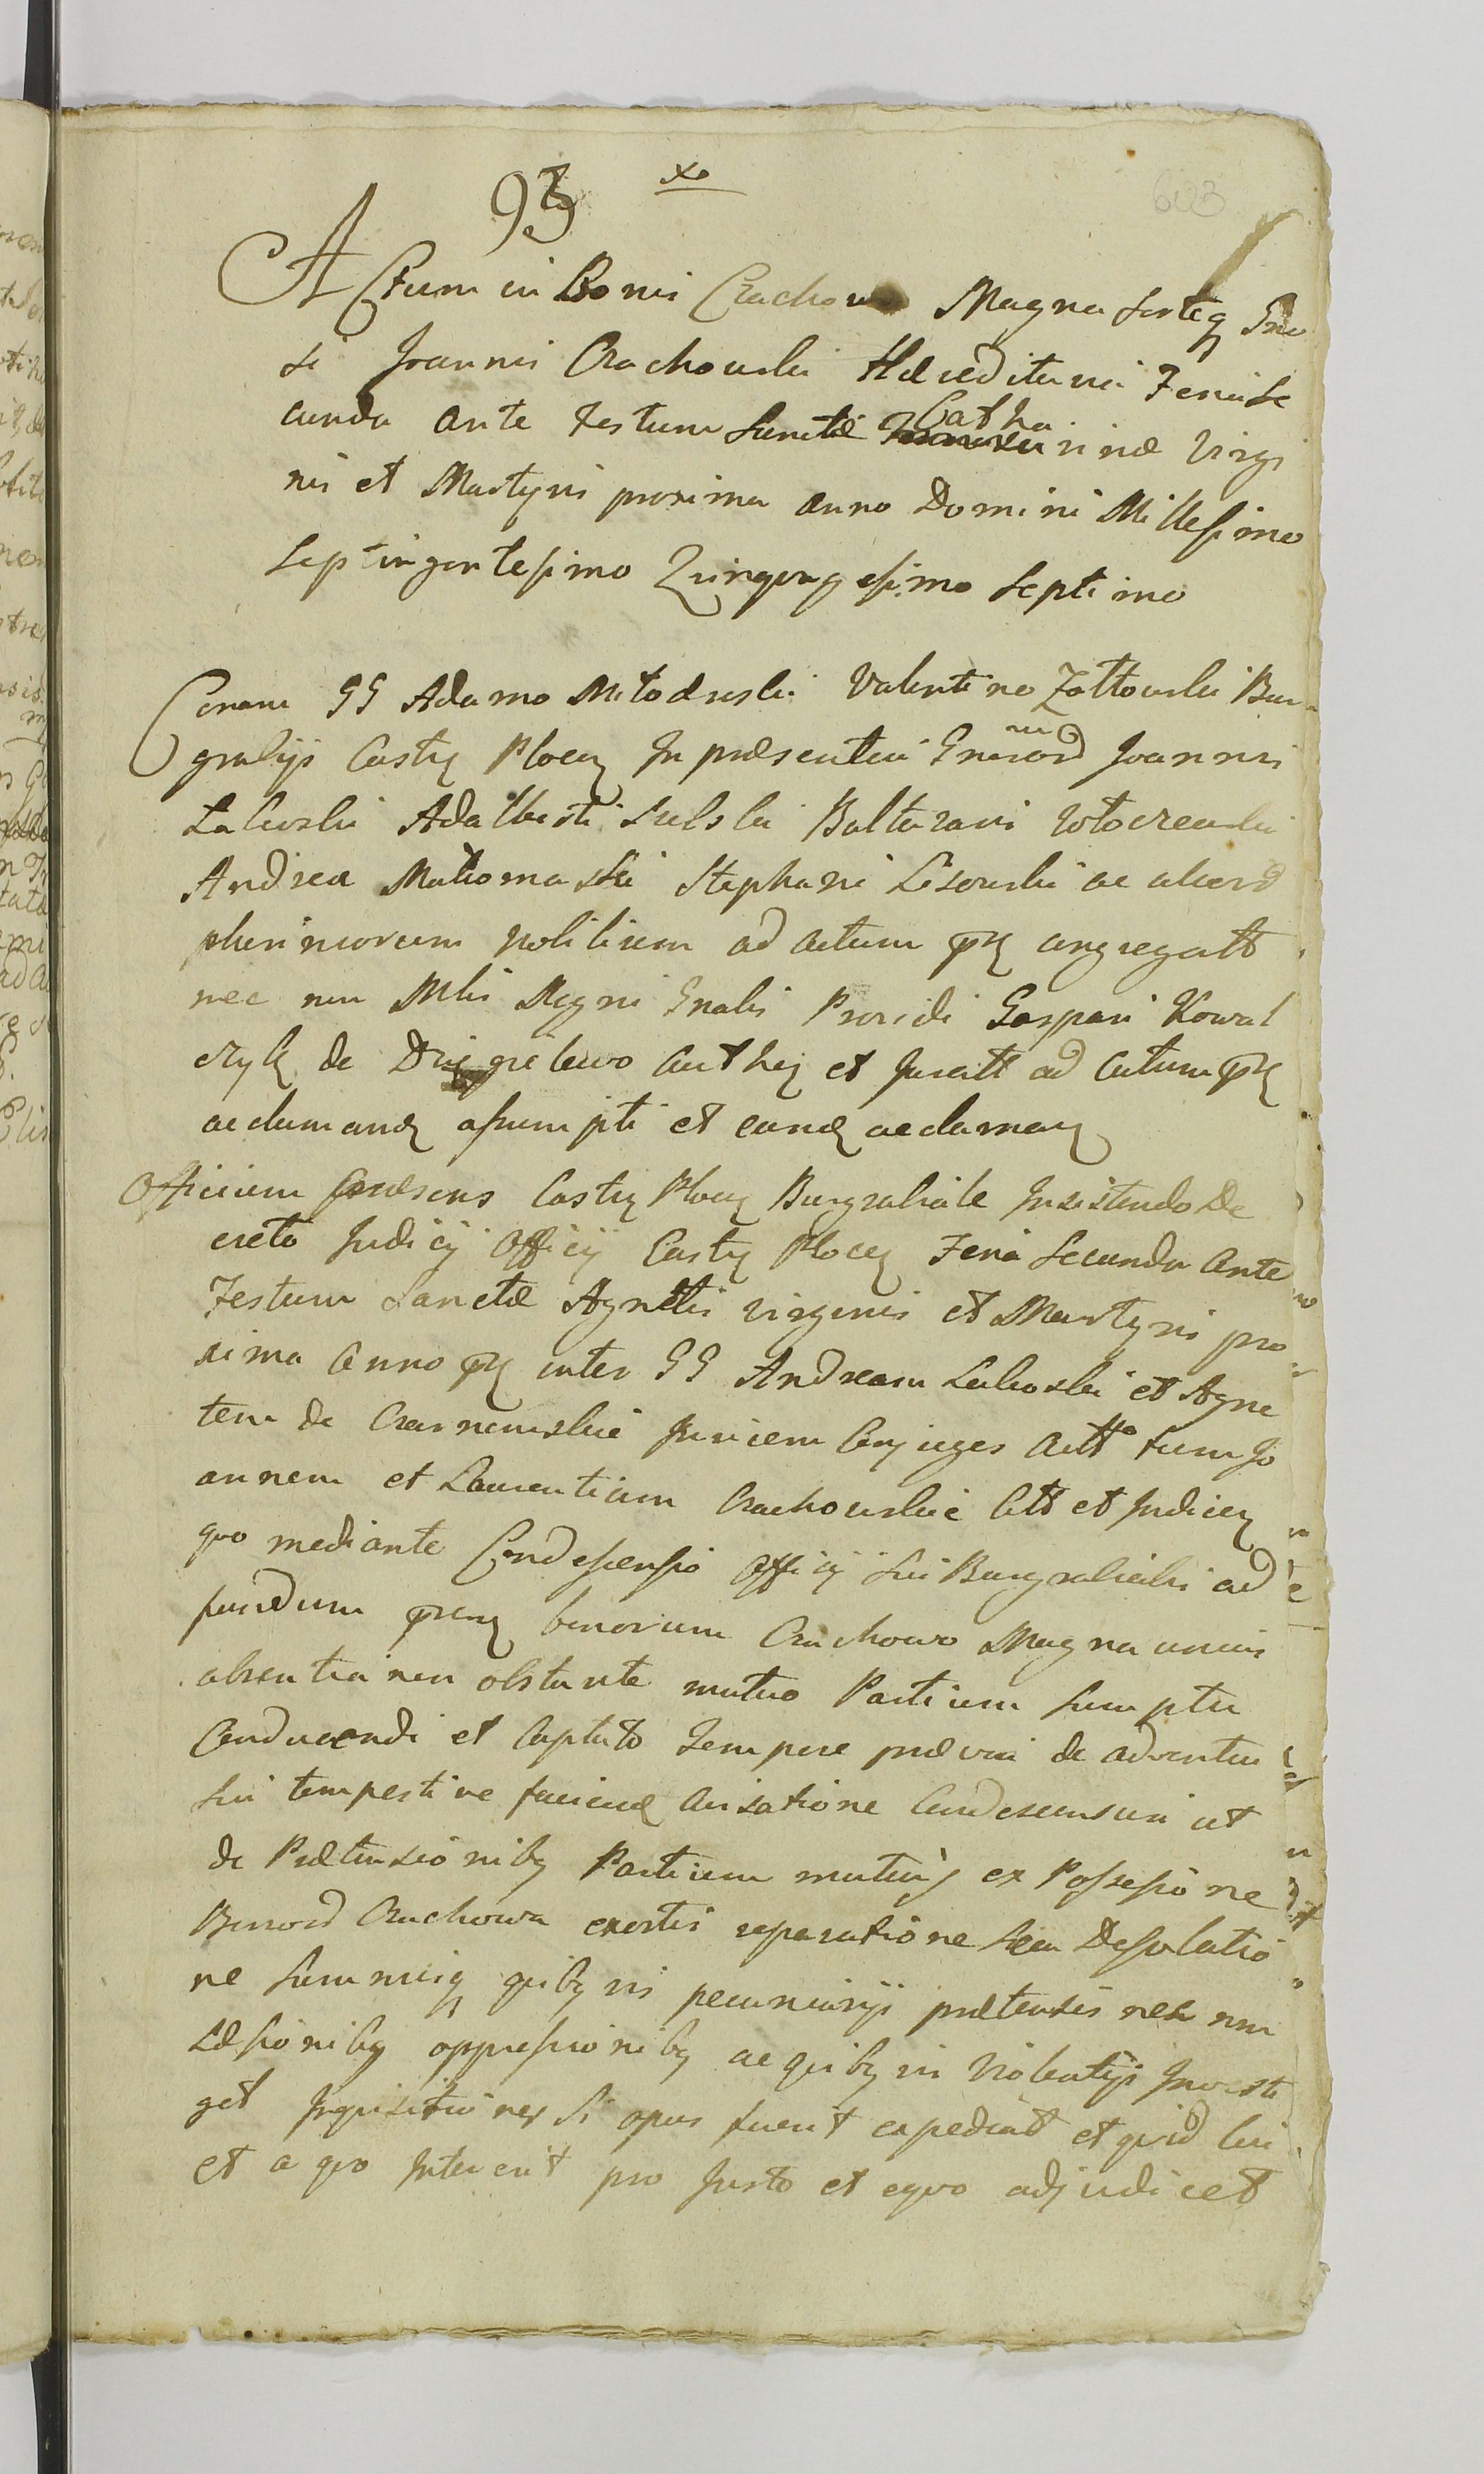 93
603
Actum in Bonis Crachowo Magna sorteq Gno
si Joannis Crachowski Hæreditariis Feria Se
cunda ante Festum Sanctæ Catharinæ Virgi
nis et Martyris proxima Anno Domini Millesimo
Septingentesimo Quinquagesimo Septimo
Coram GG Adamo Młodzeski Valentino Zołtowski Bur
grabijs Castr Plocen In præsentia Gnrsord Joannis
Adalberti Balthazari
Andrea Stephani Lisowski ac aliord
plurimorum Nobilium ad actum pñ congregatt
nec non Mlis Regni Gnalis Providi Gaspari Kowal
czyk de authen et Juratt ad actum pñ
acclamand assumpti et eund acclaman
Officium Præsens Castr Plocen Burgrabiale Insistendo De
creto Judicij Officij Castr Plocen Feria Secunda Ante
Festum Sanctæ Agnetis Virginis et Martyris pro
xima Anno pñ inter GG Andream Lakoski et Agne
tem de Czarnemskie Invicem Conjuges Actt tum Jo
annem et Laurentium Crachowskie Citt et Judicen
quo mediante Condescensio Officij Sui Burgrabialis ad
fundum pñn bonorum Crachowo Magna unius
absentia non obstante mutuo Partium Sumptu
Conducendi et Captato Tempore prævia de adventu
sui tempestive faciend avisatione Condescensuri ut
de Prætensionibg Partium mutuis ex Possessione
Bonord Crachowa exortis reparatione seu Desolatio
ne Summisq quibgvis pecuniarijs prætensis nec non
Læsionibg oppressionibg ac quibgvis Violentijs Investi
get Inquisitiones si opus fuerit expediat et quid cui
et a quo Intererit pro Justo et equo adjudicet